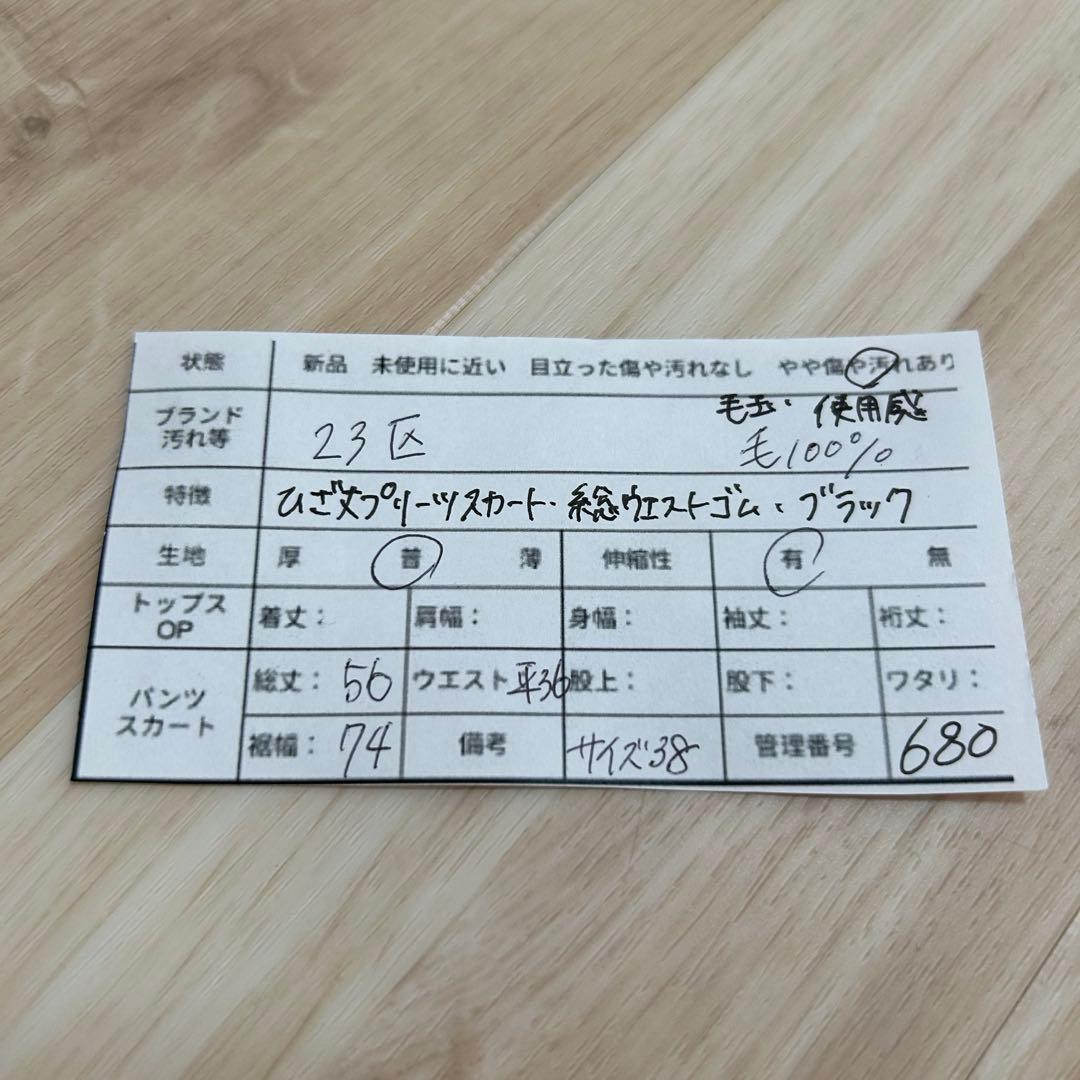 状態 新品 未使用に近い 目立った傷や汚れなし やや傷や汚れあり
ブランド 汚れ等 23区 毛玉・使用感
毛100%
特徴 ひざ丈プリーツスカート・総ウエストゴム・ブラック
生地 厚 普 薄 伸縮性 有 無
トップス OP 着丈： 肩幅： 身幅： 袖丈： 裄丈：
パンツ スカート 総丈：56 ウエスト 平36 股上： 股下： ワタリ：
裾幅：74 備考 サイズ38 管理番号 680